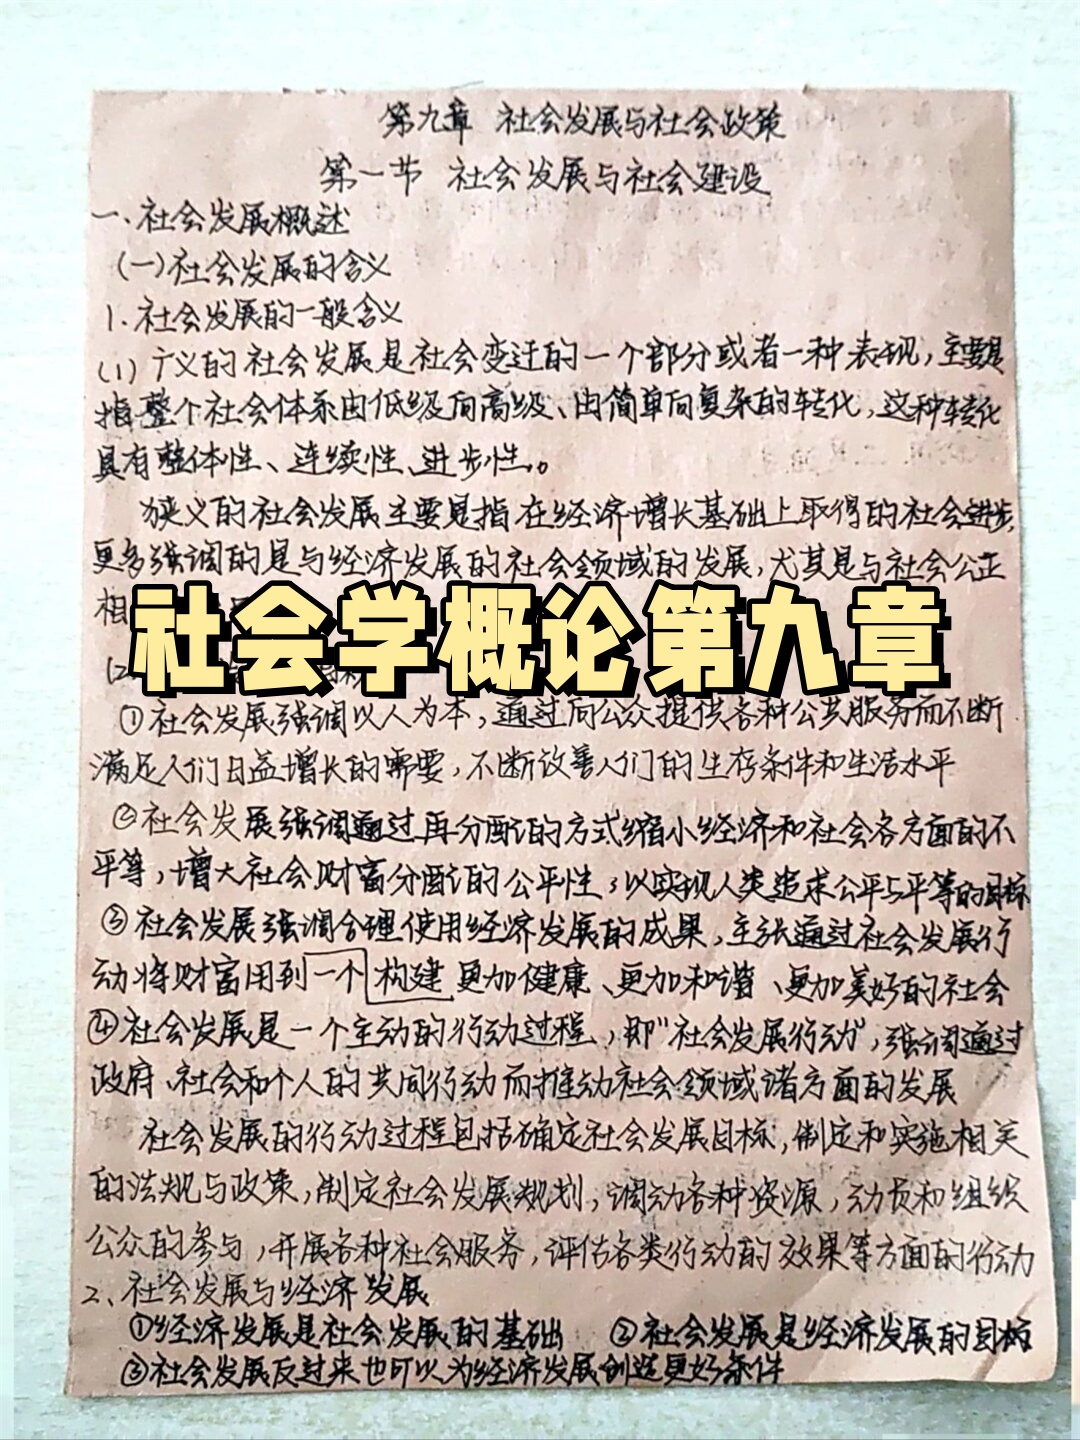 第九章 社会发展与社会政策
第一节 社会发展与社会建设
一、社会发展概述
(一)社会发展的含义
1、社会发展的一般含义
(1)广义的社会发展是社会变迁的一个部分或者一种表现，主要是
指整个社会体系由低级向高级、由简单向复杂的转化，这种转化
具有整体性、连续性、进步性。
狭义的社会发展主要是指在经济增长基础上取得的社会进步，
更多强调的是与经济发展的社会领域的发展，尤其是与社会公正
相
社会学概论第九章
(2
①社会发展强调以人为本，通过向公众提供各种公共服务而不断
满足人们日益增长的需要，不断改善人们的生存条件和生活水平
②社会发展强调通过再分配的方式缩小经济和社会各方面的不
平等，增大社会财富分配的公平性，以实现人类追求公平与平等的目标
③社会发展强调合理使用经济发展的成果，主张通过社会发展行
动将财富用到一个构建更加健康、更加和谐、更加美好的社会
④社会发展是一个主动的行动过程，即"社会发展行动"，强调通过
政府、社会和个人的共同行动而推动社会领域诸方面的发展
社会发展的行动过程包括确定社会发展目标，制定和实施相关
的法规与政策，制定社会发展规划，调动各种资源，动员和组织
公众的参与，开展各种社会服务，评估各类行动的效果等方面的行动
2、社会发展与经济发展
①经济发展是社会发展的基础 ②社会发展是经济发展的目标
③社会发展反过来也可以为经济发展创造更好条件